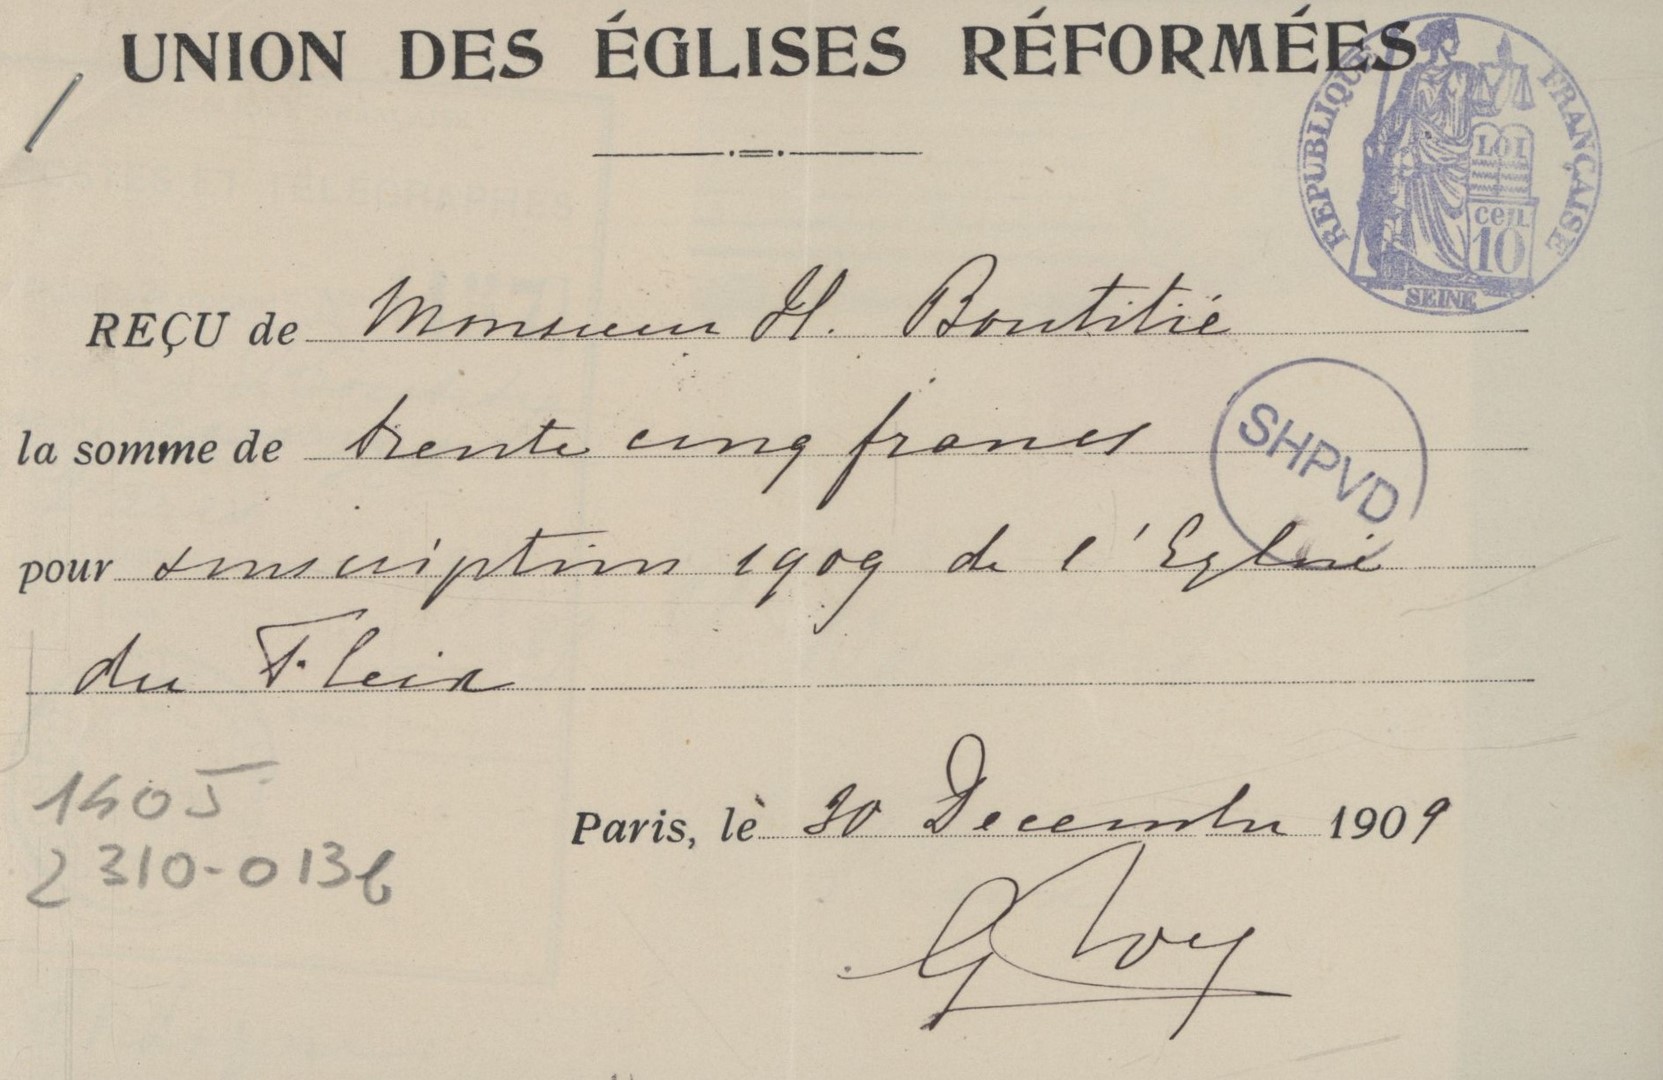 UNION DES ÉGLISES RÉFORMÉES
RÉPUBLIQUE FRANÇAISE
LOI
CENT.
10
SEINE
REÇU de Monsieur H. Boutitié
la somme de trente cinq francs
SHPVD
pour souscription 1909 de l'Eglise
du Fleix
Paris, le 30 Decembre 1909
2310-013b